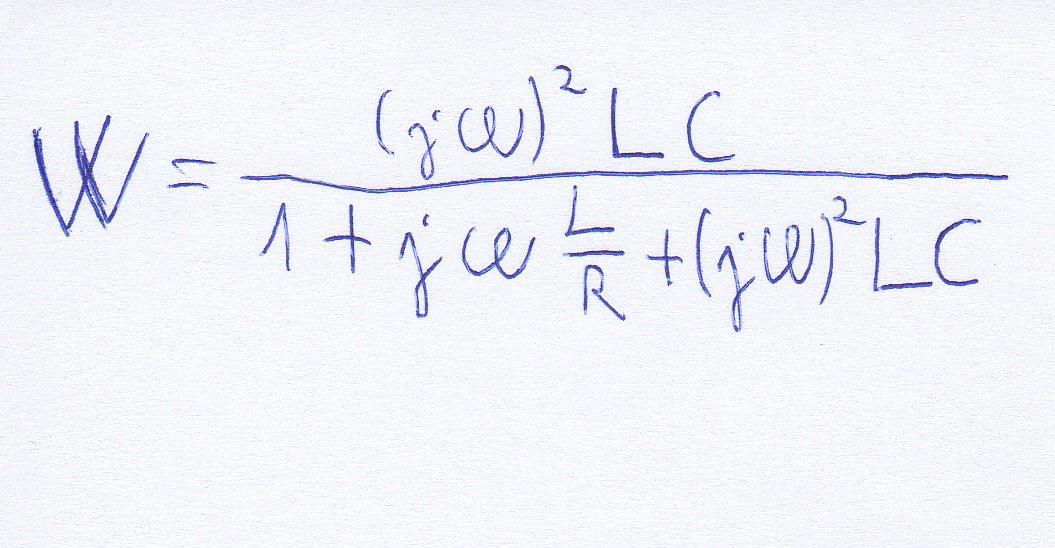 W = \frac{(jω)² L C}{1 + jω \frac{L}{R} + (jω)² L C}